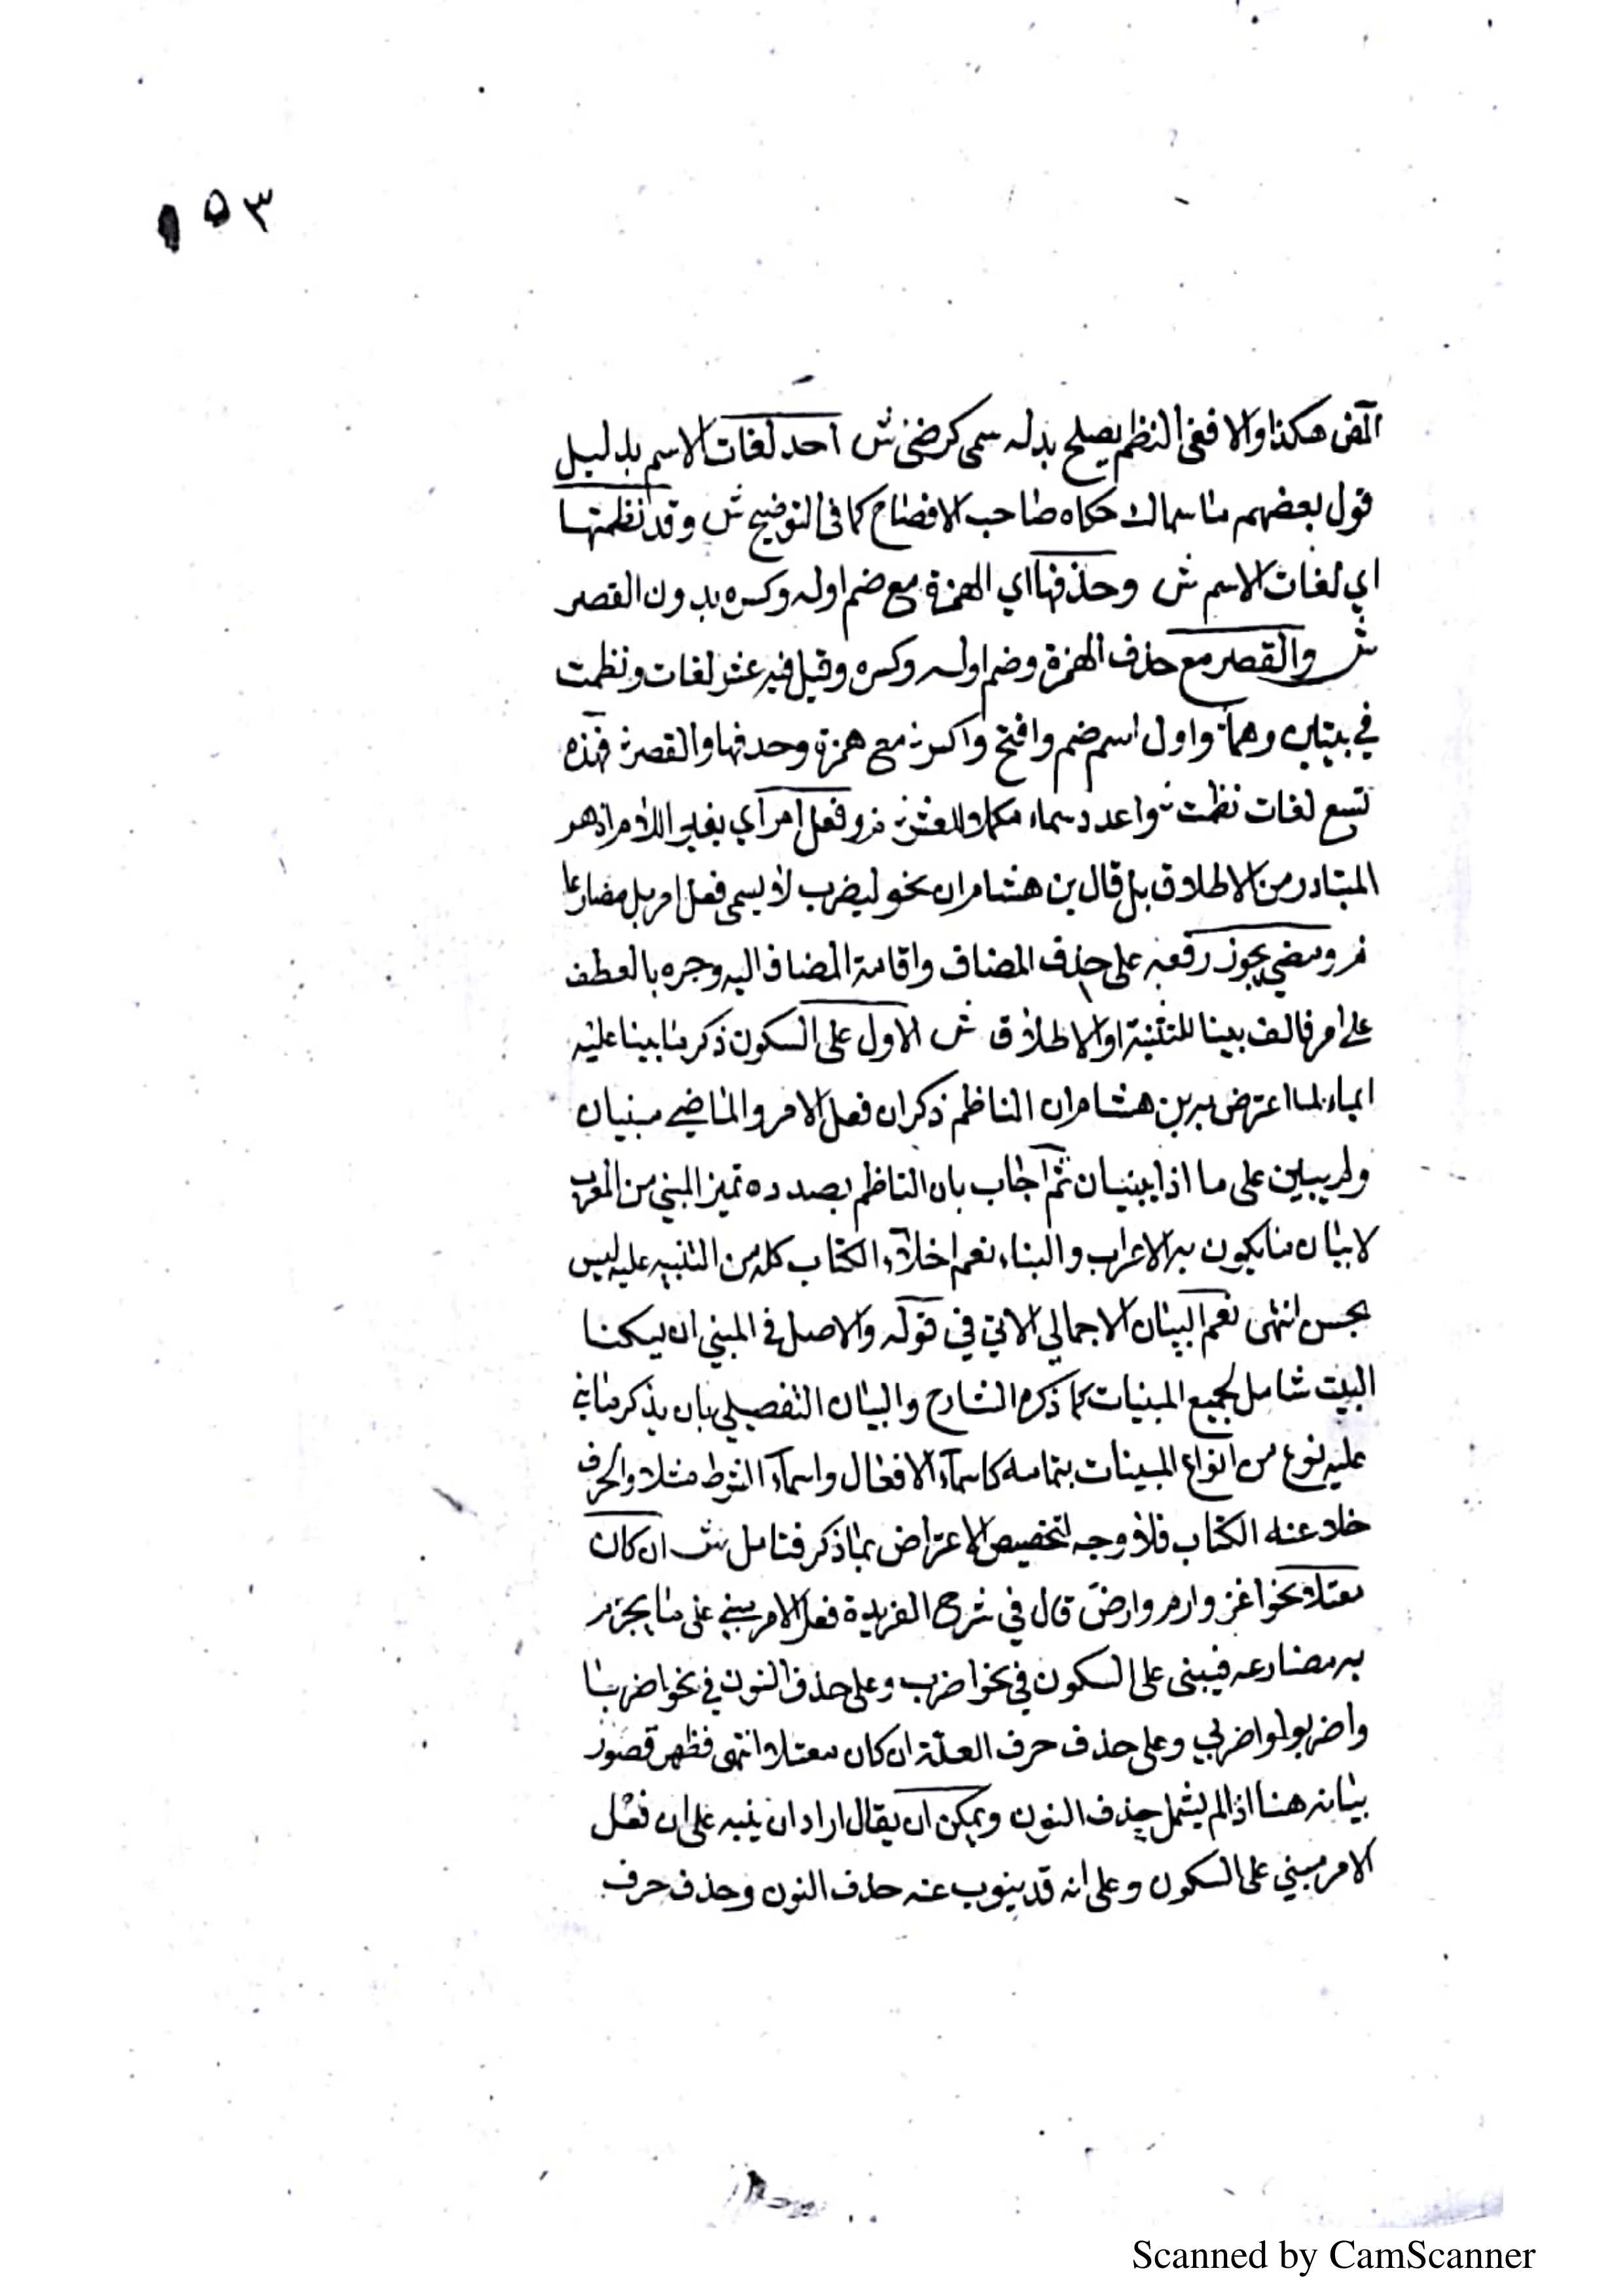 ١٥٣
المص هكذا والا ففي النظم يصلح بدله سمى كرضى ش احد لغات الاسم بدليل
قول بعضهم ما سماك حكاه صاحب الافصاح كما في التوضيح ش وقد نظمتها
اي لغات الاسم ش وحذفها اي الهمزة مع ضم اوله وكسره بدون القصر
ش والقصر مع حذف الهمزة وضم اوله وكسره وقيل فيه عشر لغات ونظمت
في بيتين وهما واول اسم ضم وافتح واكسرن مع همزة وحذفها والقصر فهذه
تسع لغات نظمت واعدد سماء مكملا للعشر وفعل امر اي بغير اللام اذ هو
المتبادر من الاطلاق بل قال بن هشام ان نحو ليضرب لا يسمى فعل امر بل مضارعا
ومضي يجوز رفعه على حذف المضاف واقامة المضاف اليه وجره بالعطف
على امر فالف بينا للتثنية او الاطلاق ش الاول على السكون ذكر ما بينا عليه
ايماء لما اعترض به بن هشام ان الناظم ذكر ان فعل الامر والماضي مبنيان
ولم يبين على ما اذا يبنيان ثم اجاب بان الناظم بصدده تميز المبني من المعرب
لا بيان ما يكون به الاعراب والبناء نعم اخلاء الكتاب كله من التنبيه عليه ليس
بحسن انتهى نعم البيان الاجمالي الاتي في قوله والاصل في المبني ان يسكنا
البيت شامل لجميع المبنيات كما ذكره الشارح والبيان التفصيلي بان يذكر ما بني
عليه نوع من انواع المبينات بتمامه كاسماء الافعال واسماء الشرط مثلا والحرف
خلا عنه الكتاب فلا وجه لتخصيص الاعتراض بما ذكر فتامل ش ان كان
معتلا نحو اغز وارم وارض قال في شرح الفريدة فعل الامر يبني على ما يجزم
به مضارعه فيبنى على السكون في نحو اضرب وعلى حذف النون في نحو اضربا
واضربوا واضربي وعلى حذف حرف العلة ان كان معتلا انتهى فظهر قصور
بيانه هنا اذ لم يشمل حذف النون ويمكن ان يقال اراد ان ينبه على ان فعل
الامر مبني على السكون وعلى انه قد ينوب عنه حذف النون وحذف حرف
Scanned by CamScanner